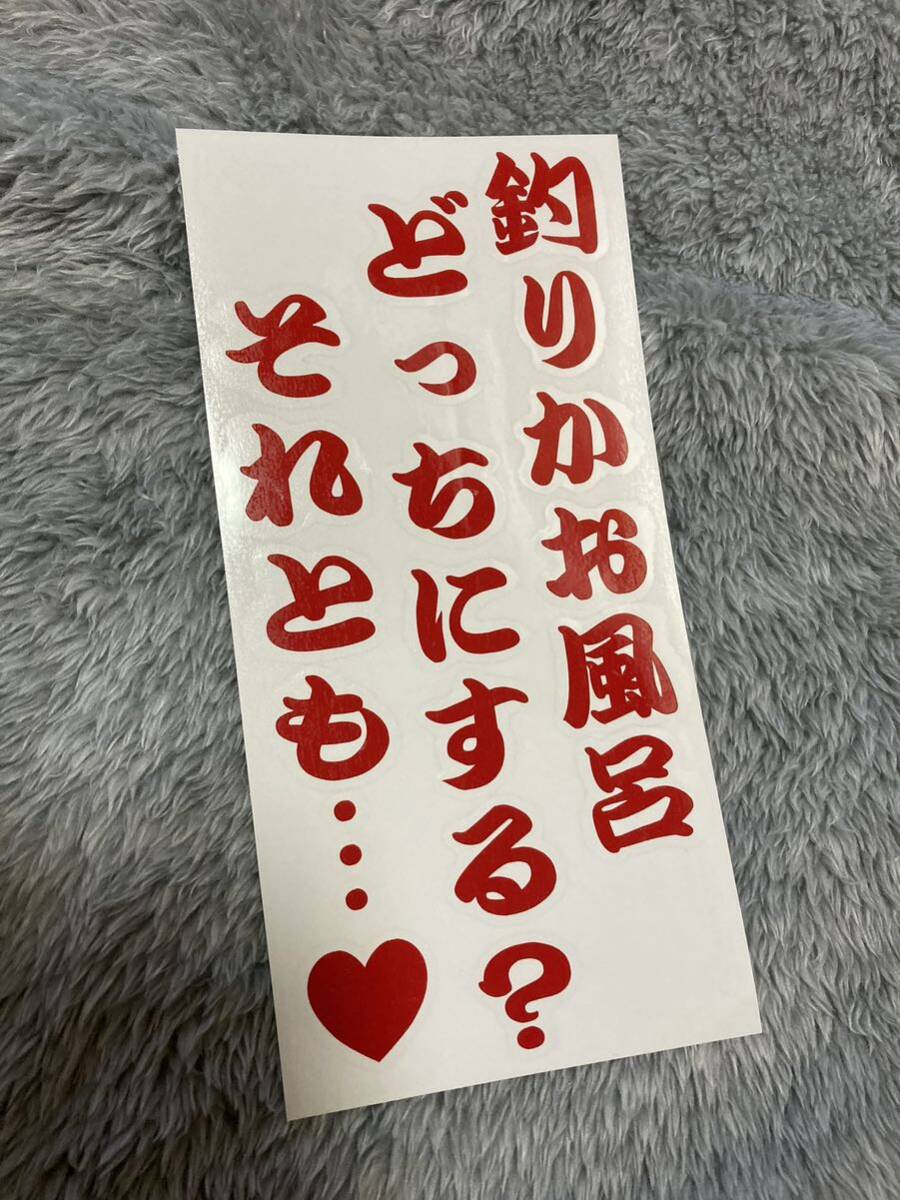 釣りかお風呂
どっちにする?
それとも…♥